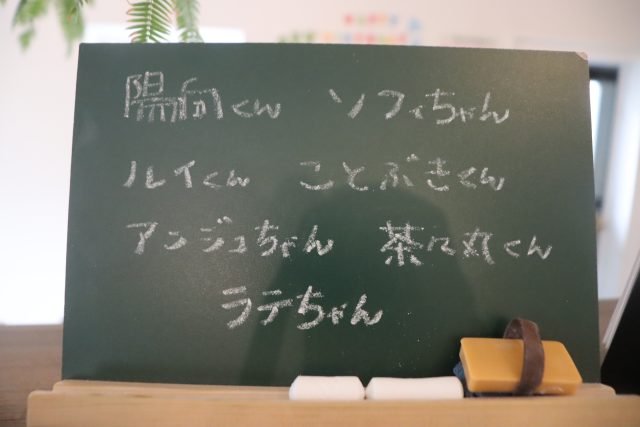 陽向くん ソフィちゃん
ルイくん ことぶきくん
アンジュちゃん 茶々丸くん
ラテちゃん